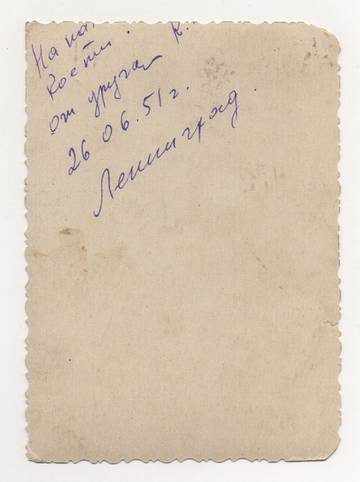 На па
Кости.
от друга К.
26 06.51 г.
Ленинград.